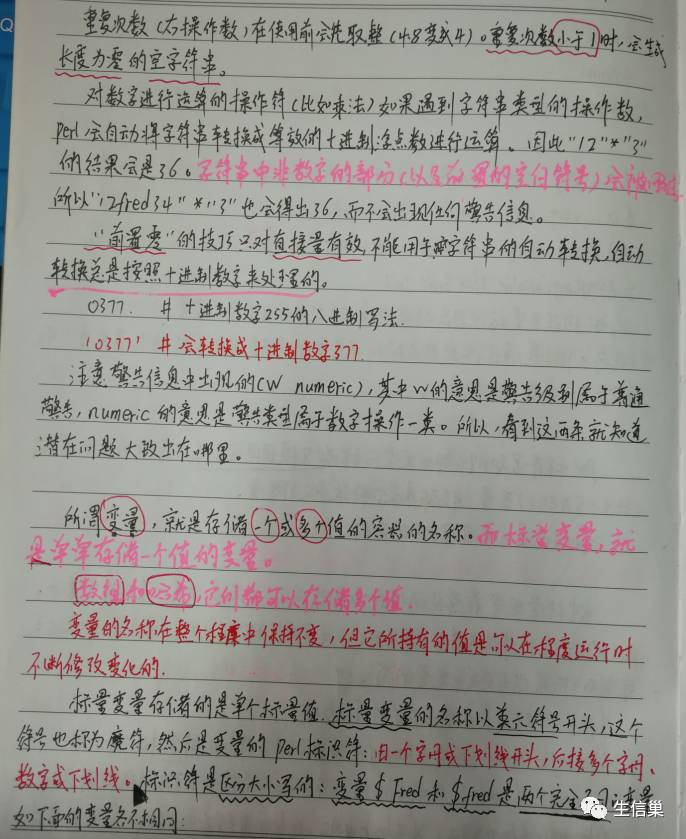 重复次数（右操作数）在使用前会先取整（4.8变成4）。重复次数小于1时，会生成
长度为零的空字符串。
对数字进行运算的操作符（比如乘法）如果遇到字符串类型的操作数，
perl会自动将字符串转换成等效的十进制浮点数进行运算。因此"12"*"3"
的结果会是36。字符串中非数字的部分（以及前置的空白符号）会被
所以"12fred34"*"3"也会得出36，而不会出现任何警告信息。
"前置零"的技巧只对直接量有效，不能用于字符串的自动转换，自动
转换总是按照十进制数字来处理的。
0377. # 十进制数字255的八进制写法.
'0377' # 会转换成十进制数字377
注意警告信息中出现的(W numeric)，其中W的意思是警告级别属于普通
警告，numeric的意思是警告类型属于数字操作一类。所以，看到这两条就知道
潜在问题大致出在哪里。
所谓变量，就是存储一个或多个值的容器的名称。而标量变量，就
是单单存储一个值的变量。
数组和哈希，它们都可以存储多个值.
变量的名称在整个程序中保持不变，但它所持有的值是可以在程序运行时
不断修改变化的.
标量变量存储的是单个标量值.标量变量的名称以美元符号开头，这个
符号也称为魔符，然后是变量的Perl标识符：由一个字母或下划线开头，后接多个字母、
数字或下划线。标识符是区分大小写的：变量$Fred和$fred是两个完全不同
如下面的变量各不相同：
生信巢